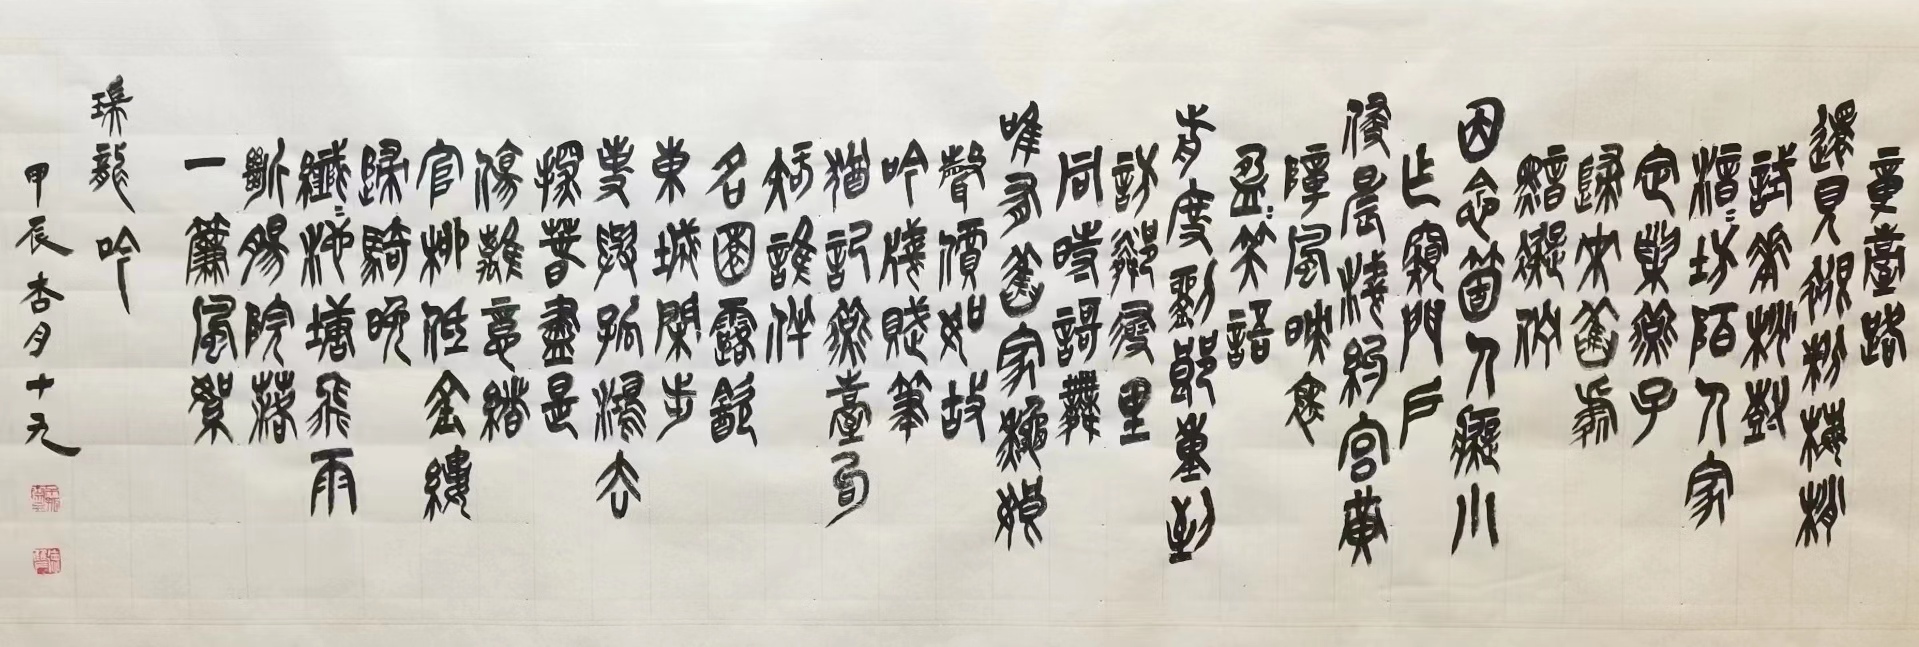 章臺路
還見褪粉梅梢
試華桃樹
愔愔坊陌人家
定巢燕子
歸來舊處
黯凝佇
因念箇人癡小
乍窺門戶
侵晨淺約宮黃
障風映袖
盈盈笑語
前度劉郎重到
訪鄰尋里
同時謌舞
唯有舊家秋娘
聲價如故
吟箋賦筆
猶記燕臺句
知誰伴
名園露飲
東城閒步
事與孤鴻去
探春盡是
傷離意緒
官柳低金縷
歸騎晚
纖纖池塘飛雨
斷腸院落
一簾風絮
瑞龍吟
甲辰杏月十九